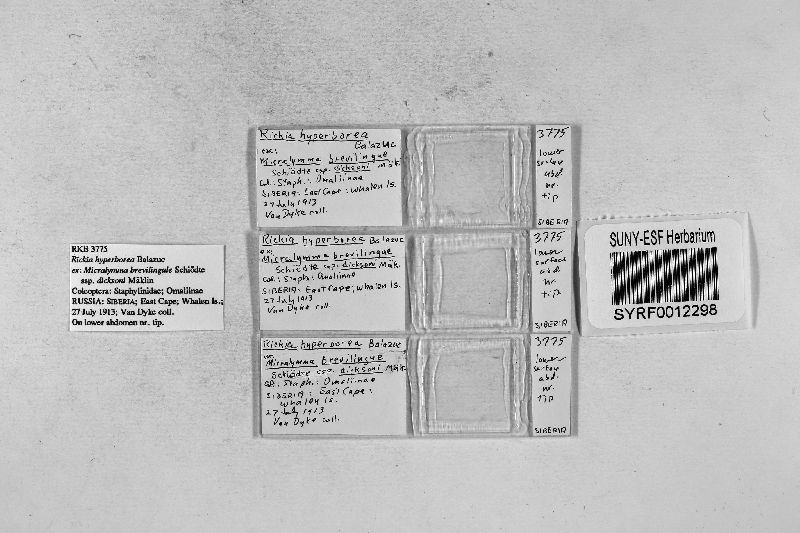 RKB 3775
Rickia hyperborea Balazuc
ex: Micralymma brevilingule Schiödte
ssp. dicksoni Mäklin
Coleoptera: Staphylinidae; Omaliinae
RUSSIA: SIBERIA; East Cape; Whalen Is.;
27 July 1913; Van Dyke coll.
On lower abdomen nr. tip.
Rickia hyperborea
Balazuc
ex:
Micralymma brevilingue
Schiödte ssp. dicksoni Mäk.
Col.: Staph.: Omaliinae
SIBERIA: East Cape: Whalen Is.
27 July 1913
Van Dyke coll.
3775
lower
surface
abd.
nr.
tip
SIBERIA
Rickia hyperborea Balazuc
ex:
Micralymma brevilingue
Schiödte ssp. dicksoni Mäk.
Col.: Staph.: Omaliinae
SIBERIA: East Cape; Whalen Is.
27 July 1913
Van Dyke coll.
3775
lower
surface
abd
nr
tip
SIBERIA
Rickia hyperborea Balazuc
ex:
Micralymma brevilingue
Schiödte ssp. dicksoni Mäk.
Col.: Staph.: Omaliinae
SIBERIA: East Cape:
Whalen Is.
27 July 1913
Van Dyke coll.
3775
lower
surface
abd.
nr.
tip
SIBERIA
SUNY-ESF Herbarium
SYRF0012298